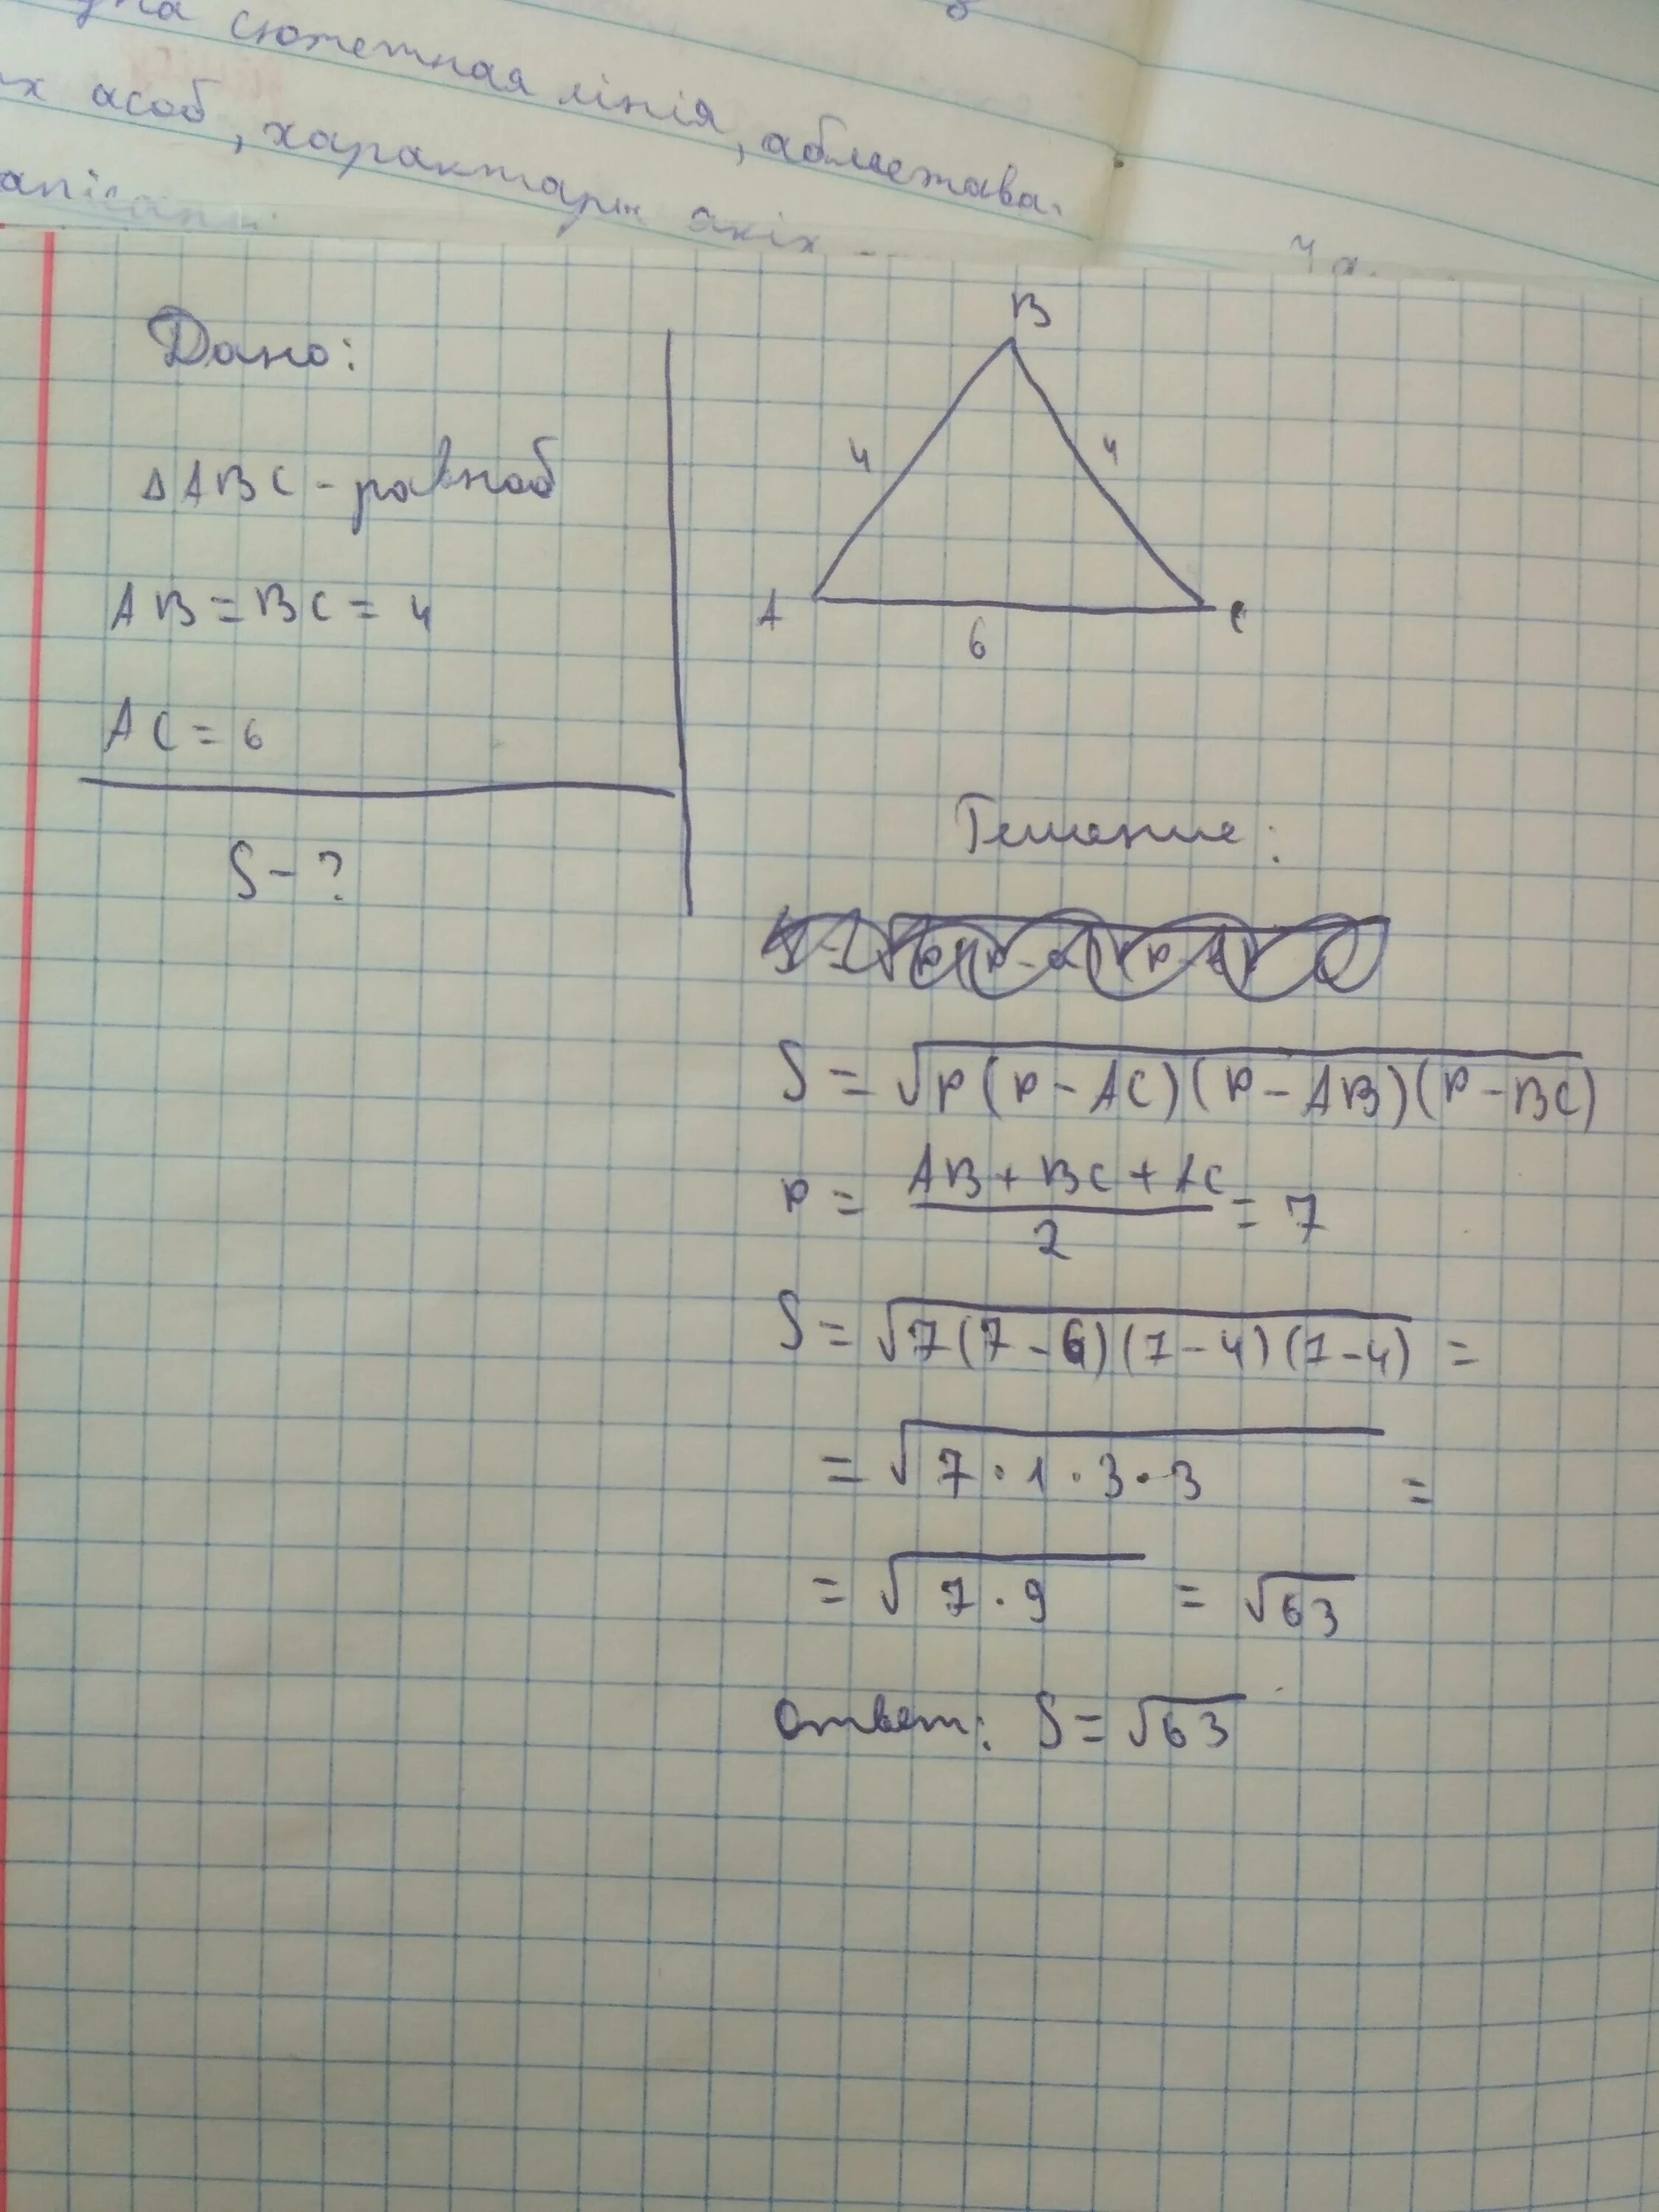 сюжетная лінія, абмежава.
х асоб, характары якіх
Дано:
∆ABC - равноб
AB = BC = 4
AC = 6
S - ?
B
4
4
A
C
6
Решение:
S = √p(p - AC)(p - AB)(p - BC)
p = AB + BC + AC / 2 = 7
S = √7(7 - 6)(7 - 4)(7 - 4) =
= √7 · 1 · 3 · 3 =
= √7 · 9 = √63
Ответ: S = √63